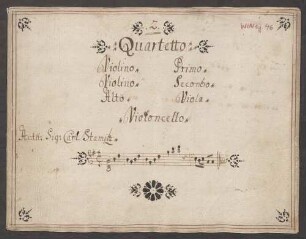 Quartetto
Violino Primo
Violino Secondo
Alto Viola
Violoncello
Carl Stamitz